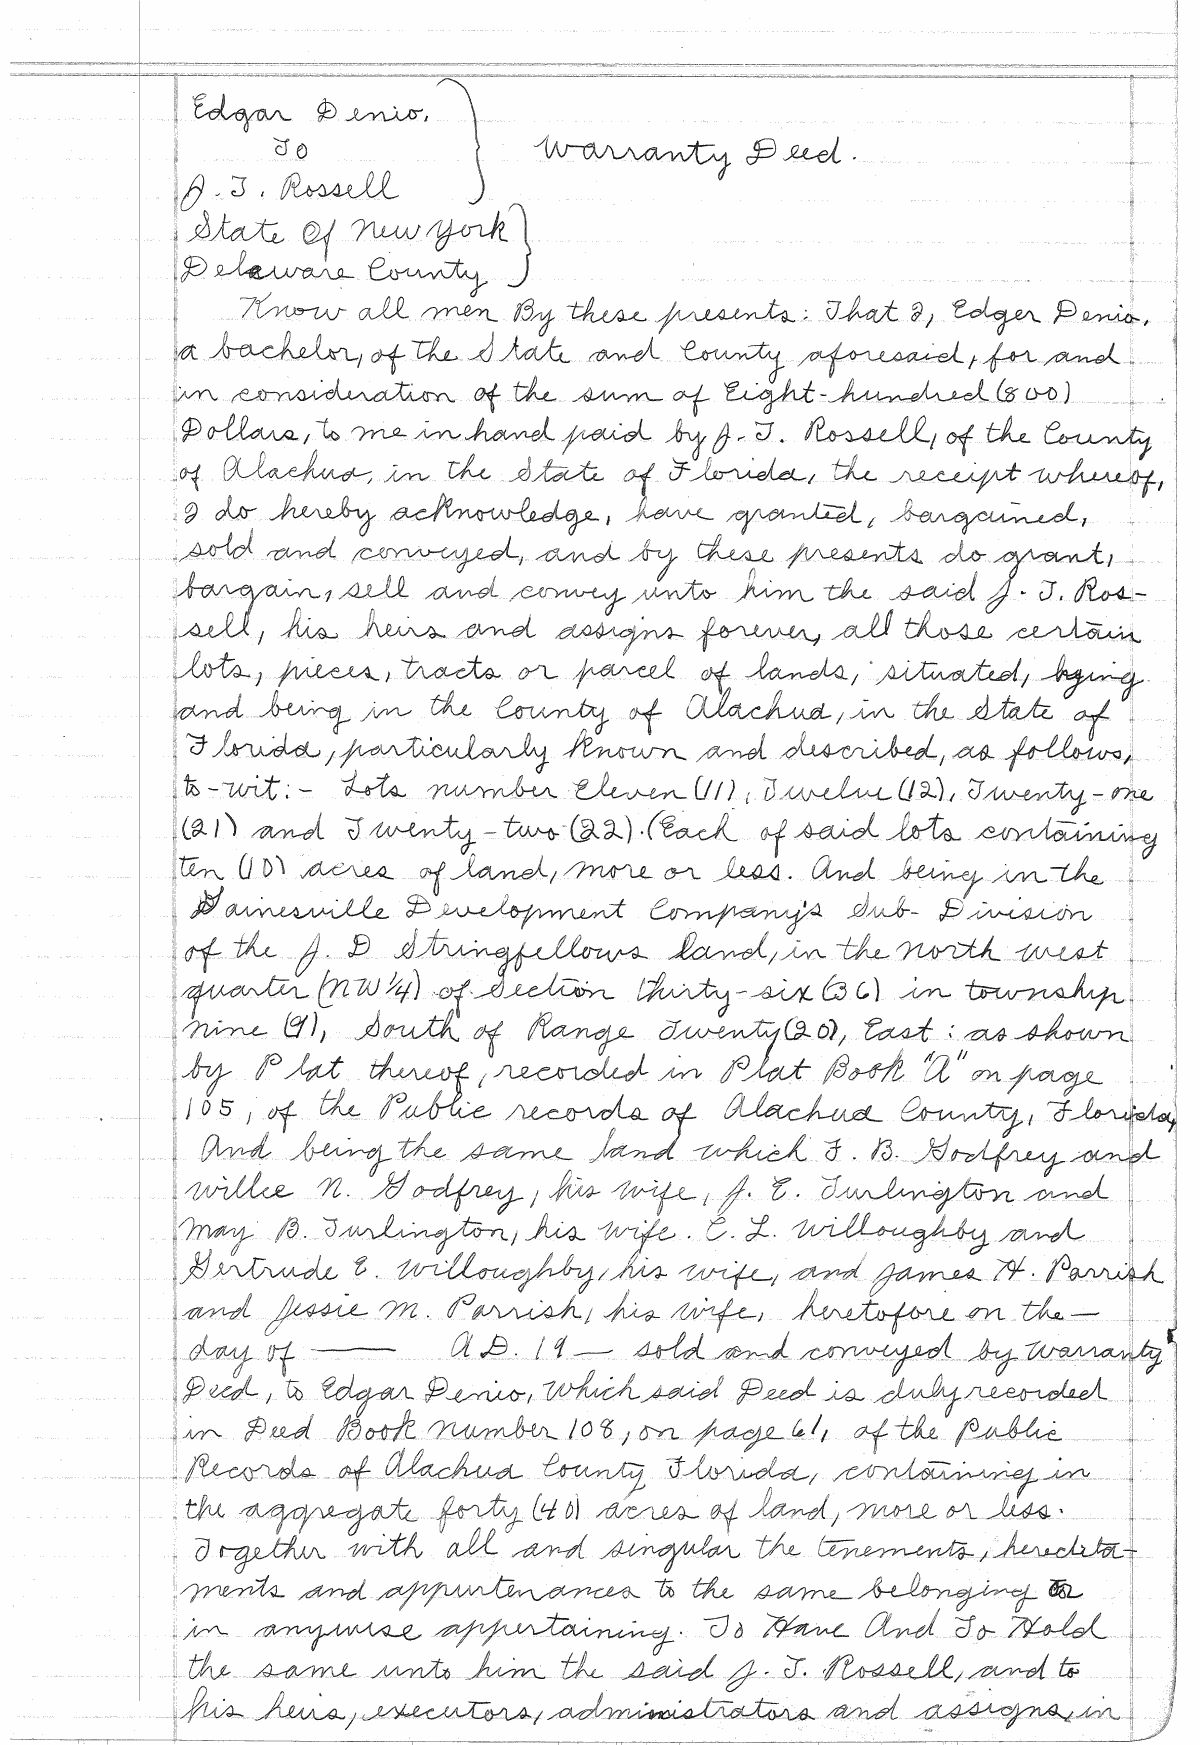 Edgar Denio.
To
J. T. Rossell
Warranty Deed.
State Of New York
Delaware County
Know all men By these presents: That I, Edger Denio,
a bachelor, of the State and County aforesaid, for and
in consideration of the sum of Eight-hundred (800)
Dollars, to me in hand paid by J. T. Rossell, of the County
of Alachua, in the State of Florida, the receipt whereof,
I do hereby acknowledge, have granted, bargained,
sold and conveyed, and by these presents do grant,
bargain, sell and convey unto him the said J. T. Ros-
sell, his heirs and assigns forever, all those certain
lots, pieces, tracts or parcel of lands, situated, lying
and being in the County of Alachua, in the State of
Florida, particularly known and described, as follows,
to-wit:- Lots number Eleven (11), Twelve (12), Twenty-one
(21) and Twenty-two (22). (Each of said lots containing
ten (10) acres of land, more or less. And being in the
Gainesville Development Company's Sub-Division
of the J. D Stringfellows land, in the North west
quarter (NW 1/4) of Section thirty-six (36) in township
nine (9), South of Range Twenty (20), East: as shown
by Plat thereof, recorded in Plat Book "A" on page
105, of the Public records of Alachua County, Florida,
And being the same land which F. B. Godfrey and
Willie N. Godfrey, his wife, J. E. Turlington and
May B. Turlington, his wife. C. L. Willoughby and
Gertrude E. Willoughby, his wife, and James H. Parrish
and Jessie M. Parrish, his wife, heretofore on the —
day of —— A.D. 19 — sold and conveyed by Warranty
Deed, to Edgar Denio, Which said Deed is duly recorded
in Deed Book Number 108, on page 61, of the Public
Records of Alachua County Florida, containing in
the aggregate forty (40) acres of land, more or less.
Together with all and singular the tenements, heredita-
ments and appurtenances to the same belonging or
in anywise appertaining. To Have And To Hold
the same unto him the said J. T. Rossell, and to
his heirs, executors, administrators and assigns, in